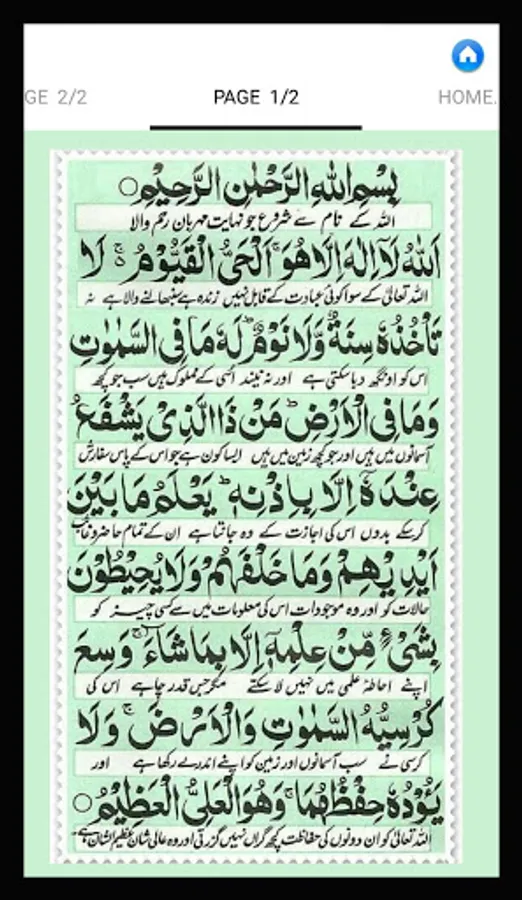 GE 2/2 PAGE 1/2 HOME.
بِسْمِ اللهِ الرَّحْمٰنِ الرَّحِيْمِ ○
اللہ کے نام سے شروع جو نہایت مہربان رحم والا
اَللهُ لَآ اِلٰهَ اِلَّا هُوَ ۚ اَلْحَىُّ الْقَيُّوْمُ ۚ۬ لَا
اللہ تعالیٰ کے سوا کوئی عبادت کے قابل نہیں زندہ ہے سنبھالنے والا ہے نہ
تَاْخُذُهٗ سِنَةٌ وَّلَا نَوْمٌ ؕ لَهٗ مَا فِى السَّمٰوٰتِ
اس کو اونگھ دبا سکتی ہے اور نہ نیند اُسی کے مملوک ہیں سب جو کچھ
وَمَا فِى الْاَرْضِ ؕ مَنْ ذَا الَّذِىْ يَشْفَعُ
آسمانوں میں ہیں اور جو کچھ زمین میں ہیں ایسا کون ہے جو اس کے پاس سفارش
عِنْدَهٗٓ اِلَّا بِاِذْنِهٖ ؕ يَعْلَمُ مَا بَيْنَ
کر سکے بدوں اس کی اجازت کے وہ جانتا ہے ان کے تمام حاضر و غائب
اَيْدِيْهِمْ وَمَا خَلْفَهُمْ ۚ وَلَا يُحِيْطُوْنَ
حالات کو اور وہ موجودات اس کی معلومات میں سے کسی چیز کو
بِشَىْءٍ مِّنْ عِلْمِهٖٓ اِلَّا بِمَا شَآءَ ۚ وَسِعَ
اپنے احاطۂ علمی میں نہیں لا سکتے مگر جس قدر چاہے اس کی
كُرْسِيُّهُ السَّمٰوٰتِ وَالْاَرْضَ ۚ وَلَا
کرسی نے سب آسمانوں اور زمین کو اپنے اندر لے رکھا ہے اور
يَـُٔوْدُهٗ حِفْظُهُمَا ۚ وَهُوَ الْعَلِىُّ الْعَظِيْمُ ○
اللہ تعالیٰ کو ان دونوں کی حفاظت کچھ گراں نہیں گزرتی اور وہ عالی شان عظیم الشان ہے۔